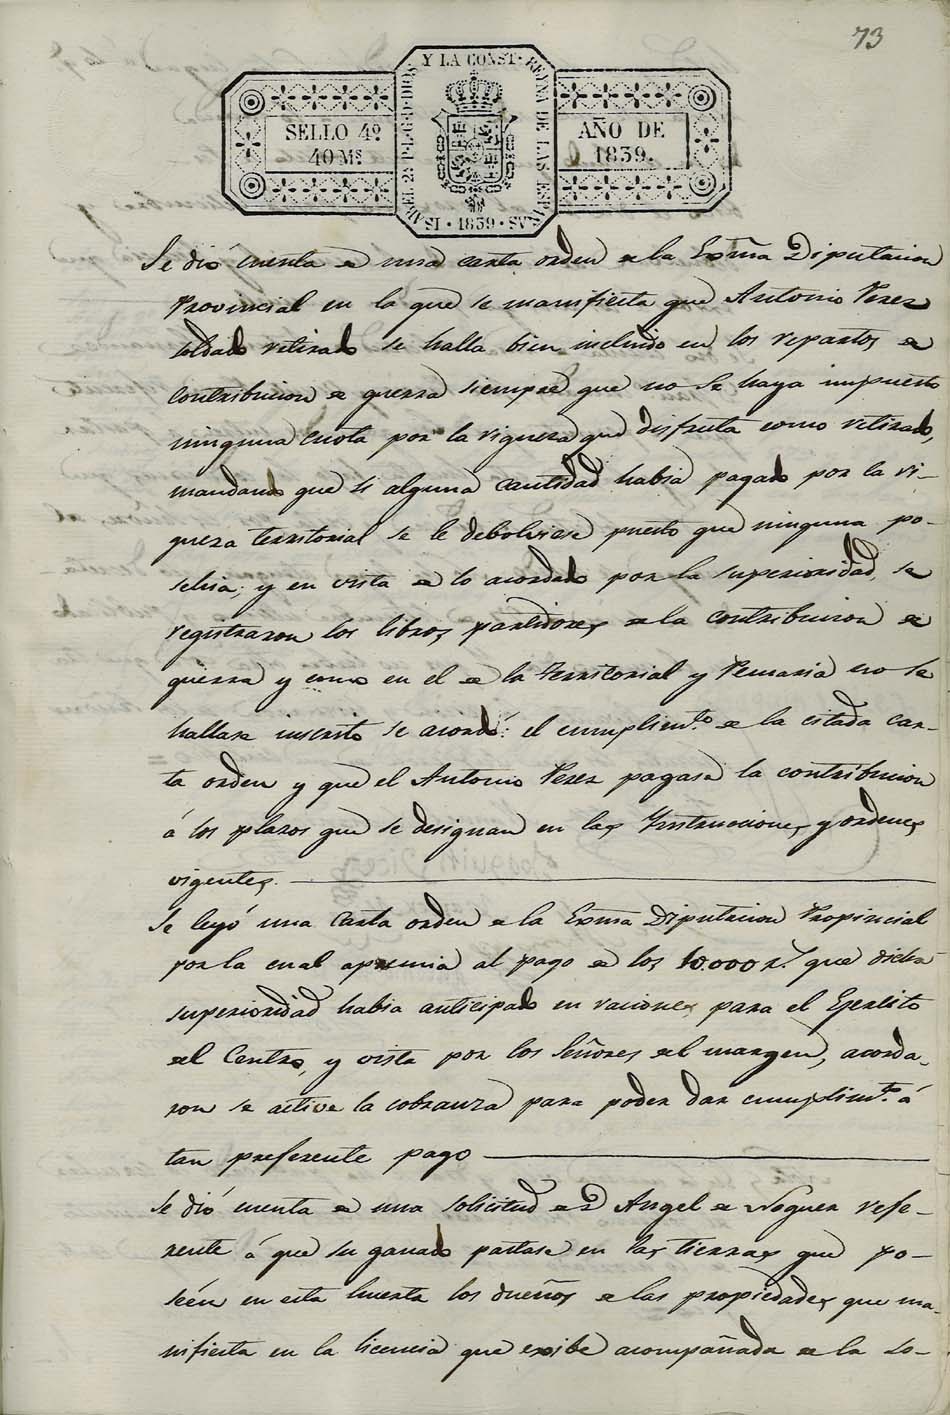 73
SELLO 4º
40 Mˢ
ISABEL 2ª P. L. G. D. DIOS Y LA CONST. REYNA DE LAS ESPAÑAS
· 1839 ·
AÑO DE
1839.
Se dió cuenta de una carta orden de la Exma Diputacion
Provincial en la que se manifiesta que Antonio Perez
soldado retirado se halla bien incluido en los repartos de
contribucion de guerra siempre que no se haya impuesto
ninguna cuota por la riqueza que disfruta como retirado,
mandando que si alguna cantidad habia pagado por la ri-
queza territorial se le debolviese puesto que ninguna po-
sehia; y en vista de lo acordado por la superioridad, se
registraron los libros partidores de la contribucion de
guerra y como en el de la territorial y Pecuaria no se
hallara inscrito se acordó: el cumplimto de la citada car-
ta orden y que el Antonio Perez pagase la contribucion
á los plazos que se designan en las Instrucciones y ordenes
vigentes.
Se leyó una Carta orden de la Exma Diputacion Propincial
por la cual apremia al pago de los 10.000 r.s que dicha
superioridad habia anticipado en raciones para el Ejercito
del Centro, y vista por los Señores del margen, acorda-
ron se active la cobranza para poder dar cumplimto á
tan preferente pago
Se dió cuenta de una solicitud de D Angel de Noguer refe-
rente á que su ganado pastase en las tierras que po-
seén en esta huerta los dueños de las propiedades que ma-
nifiesta en la licencia que exibe acompañada de la so-